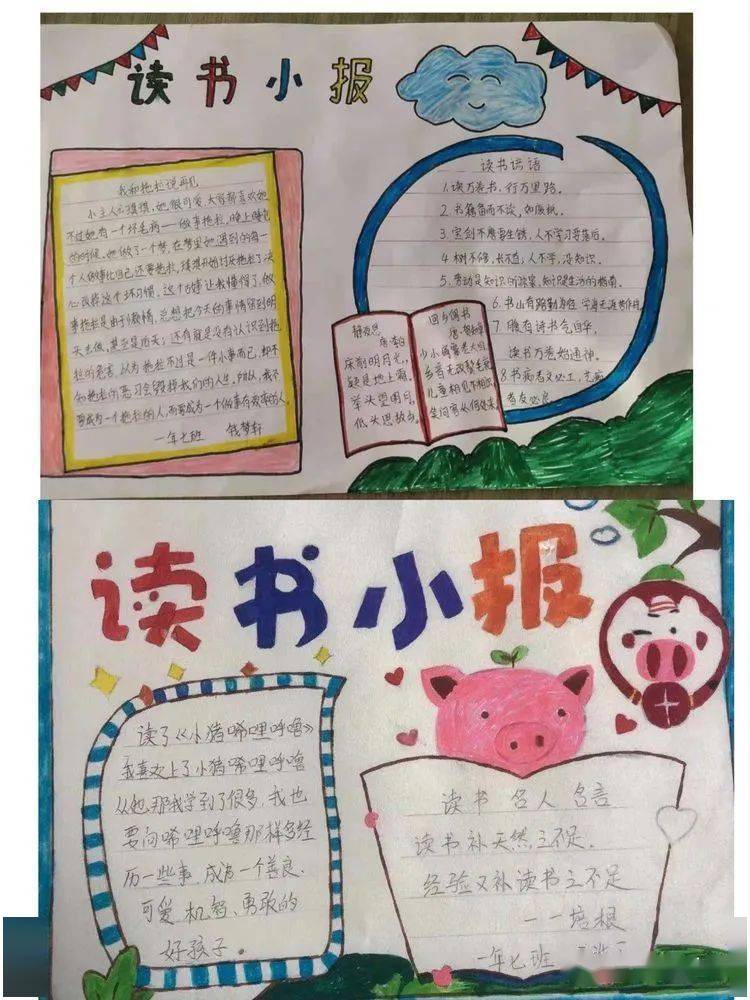 读书小报
我和拖拉说再见
小主人公琪琪,她很可爱,大家都喜欢她
不过她有一个坏毛病——做事拖拉,晚上睡觉
的时候,她做了一个梦,在梦里她遇到的每一
个人做事比自己还要拖拉,琪琪开始讨厌拖拉了决
心改掉这个坏习惯。这个故事让我懂得了,做
事拖拉是由于懒惰,总想把今天的事情留到明
天去做,甚至是后天;还有就是没有认识到拖
拉的危害,以为拖拉不过是一件小事而已,却不
知拖拉的恶习会毁掉我们的人生。所以,我不
要成为一个拖拉的人,而要成为一个做事有效率的人。
一年七班 钱梦轩
读书谚语
1.读万卷书,行万里路。
2.书籍备而不读,如废纸。
3.宝剑不磨要生锈,人不学习要落后。
4.树不修,长不直;人不学,没知识。
5.劳动是知识的源泉,知识是生活的指南。
6.书山有路勤为径,学海无涯苦作舟。
7.腹有诗书气自华,
读书万卷始通神。
8.书病
者友必良
静夜思
唐·李白
床前明月光,
疑是地上霜。
举头望明月,
低头思故乡。
回乡偶书
唐·贺知章
少小离家老大回,
乡音无改鬓毛衰。
儿童相见不相识,
笑问客从何处来。
读书小报
读了《小猪唏哩呼噜》
我喜欢上了小猪唏哩呼噜
从他那我学到了很多,我也
要向唏哩呼噜那样多经
历一些事,成为一个善良、
可爱、机智、勇敢的
好孩子。
读书名人名言
读书补天然之不足,
经验又补读书之不足
——培根
一年七班